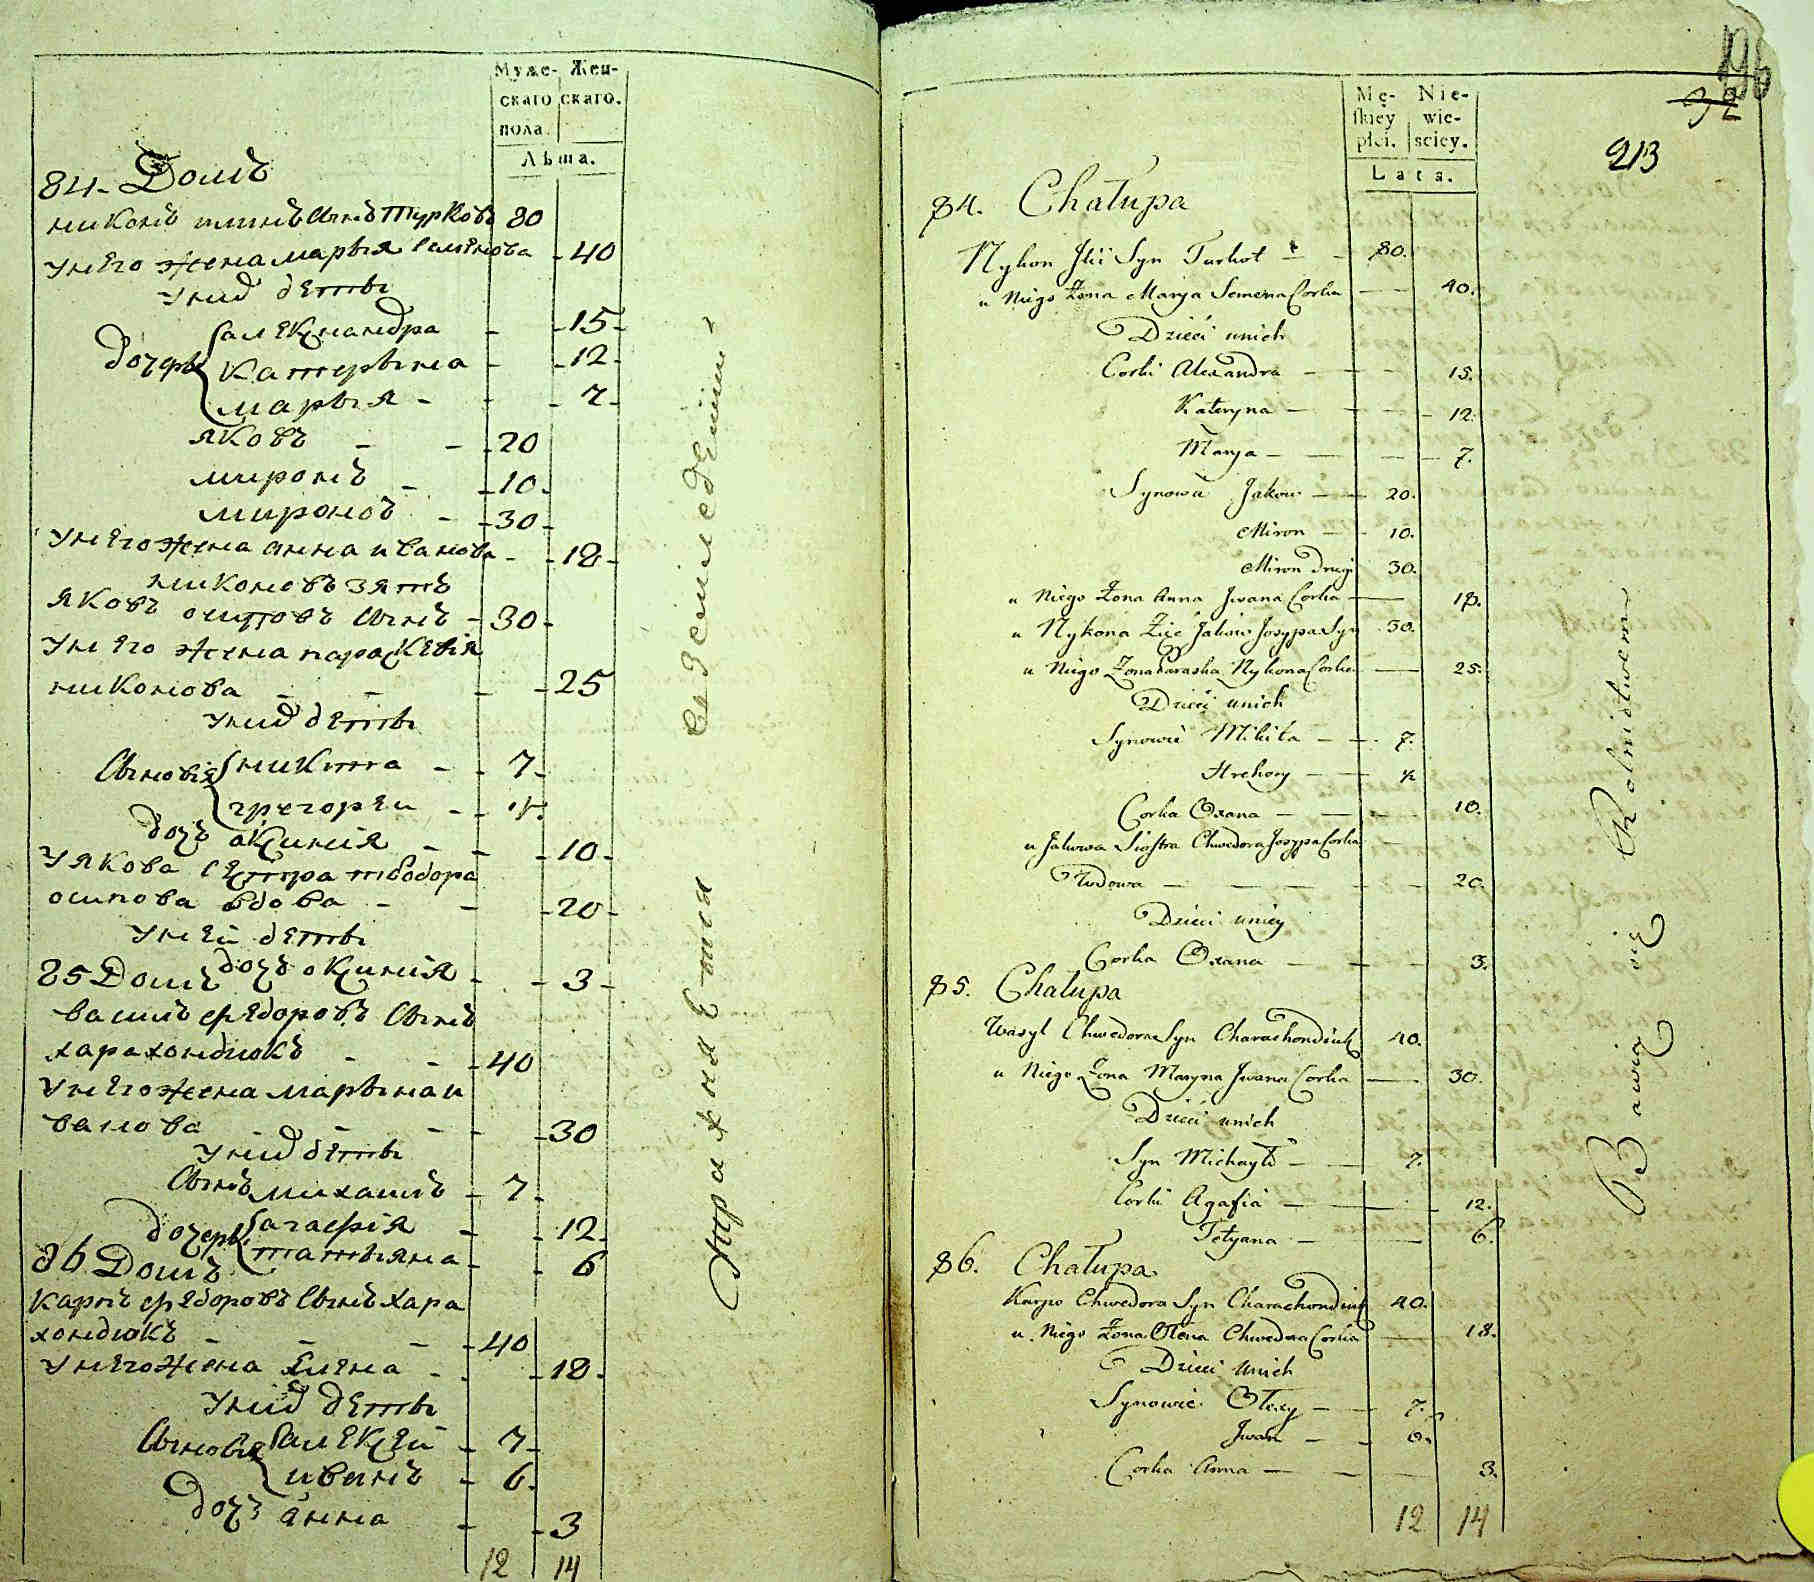 Муже- Жен-
скаго скаго.
пола.
Лѣта.
84. Домъ
никонъ илинъ сынъ турковъ 80
унего жена марья семенова 40
унид дети
дочери александра 15
катерына 12
марья 7
яковъ 20
миронъ 10
миронов 30
унего жена анна иванова 18
никоновъ зять
яковъ осиповъ сынъ 30
унего жена параскевія
никонова 25
унид дети
сыновія никита 7
григорей
дочъ оксинія 10
Уякова сестра твобора
осипова вдова 20
уней дети
дочъ оксинія 3
85 Домъ
василь федоровъ сынъ
харахондюкъ 40
унего жена марына и
ванова 30
унид дети
сынъ михаилъ 7
дочери агафія 12
татьяна 6
86 Домъ
карпъ федоровъ сынъ хара
хондюкъ 40
унего жена елена 18
унид дети
сыновія алексей 7
иванъ 6
дочъ анна 3
12 14
196
92
213
Mę- Nie-
skiey wie-
płci. sciey.
Lata.
84. Chałupa
Nykon Jlii Syn Turkot 80.
u Niego Żona Marya Semena Corka 40.
Dzieci unich
Corki Alexandra 15.
Kateryna 12.
Marya 7.
Synowie Jakow 20.
Miron 10.
Miron Drugi 30.
u Niego Żona Anna Jwana Corka 18.
u Nykona Zięć Jakow Josypa Syn 30.
u Niego Żona Paraska Nykona Corka 25.
Dzieci unich
Synowie Mikita 7.
Hrehory
Corka Oxana 10.
u Jakowa Siostra Chwedora Josypa Corka
Wdowa 20.
Dzieci uniey
Corka Oxana 3.
85. Chałupa
Wasyl Chwedora Syn Charachondiuk 40.
u Niego Żona Maryna Jwana Corka 30.
Dzieci unich
Syn Michayło 7.
Corki Agafia 12.
Tetyana 6.
86. Chałupa
Karpo Chwedora Syn Charachondiuk 40.
u Niego Żona Olena Chwedora Corka 18.
Dzieci unich
Synowie Olexy 7.
Jwan 6.
Corka Anna 3.
12 14
Bawią się Rolnictwem